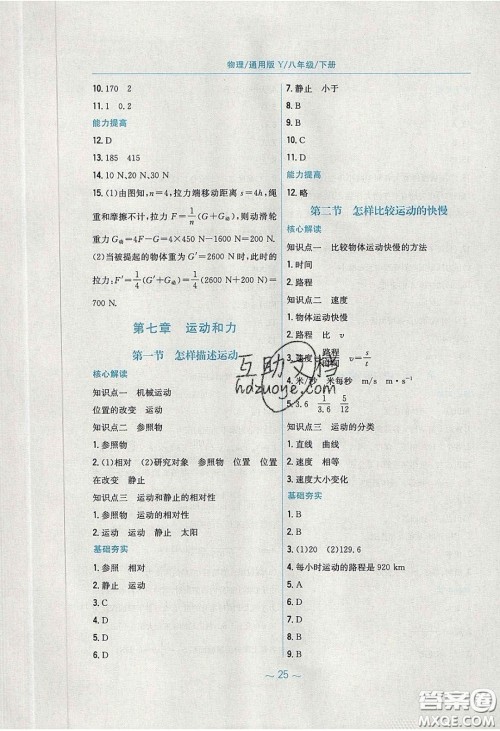 物理/通用版 Y/八年级/下册
10. 170　2
11. 1　0.2
能力提高
12. D
13. 185　415
14. 10 N、20 N、30 N
15. (1)由图知，n=4，拉力端移动距离 s=4h，绳
重和摩擦不计，拉力 F=1/4(G+G动)，则动滑轮
重力 G动=4F-G=4×450 N-1600 N=200 N.
(2)当被提起的物体重为 G′=2600 N 时，此时的
拉力：F′=1/4(G′+G动)=1/4(2600 N+200 N)=
700 N.
第七章　运动和力
第一节　怎样描述运动
核心解读
知识点一　机械运动
位置的改变　运动
知识点二　参照物
1. 参照物
2. (1)相对　(2)研究对象　参照物　位置　位置
在改变　静止
知识点三　运动和静止的相对性
1. 参照物　运动的相对性
2. 运动　运动　静止　太阳
基础夯实
1. 参照　相对
2. 静止　运动
3. C
4. D
5. D
6. D
7. 静止　小于
8. B
9. B
10. C
11. D
能力提高
12. 略
第二节　怎样比较运动的快慢
核心解读
知识点一　比较物体运动快慢的方法
1. 时间
2. 路程
知识点二　速度
1. 物体运动快慢
2. 路程　比　v
3. 速度=路程/时间　v=s/t
4. 米/秒　米每秒　m/s　m·s⁻¹
5. 3.6　1/3.6　5/12
知识点三　运动的分类
1. 直线　曲线
2. 速度　相等
3. 速度大小变化
基础夯实
1. B
2. B
3. (1)20　(2)129.6
4. 每小时运动的路程是 920 km
5. A
6. D
7. D
8. B
9. B
～ 25 ～
互助文档
hdzuoye.com
答案圈
MXQE.COM